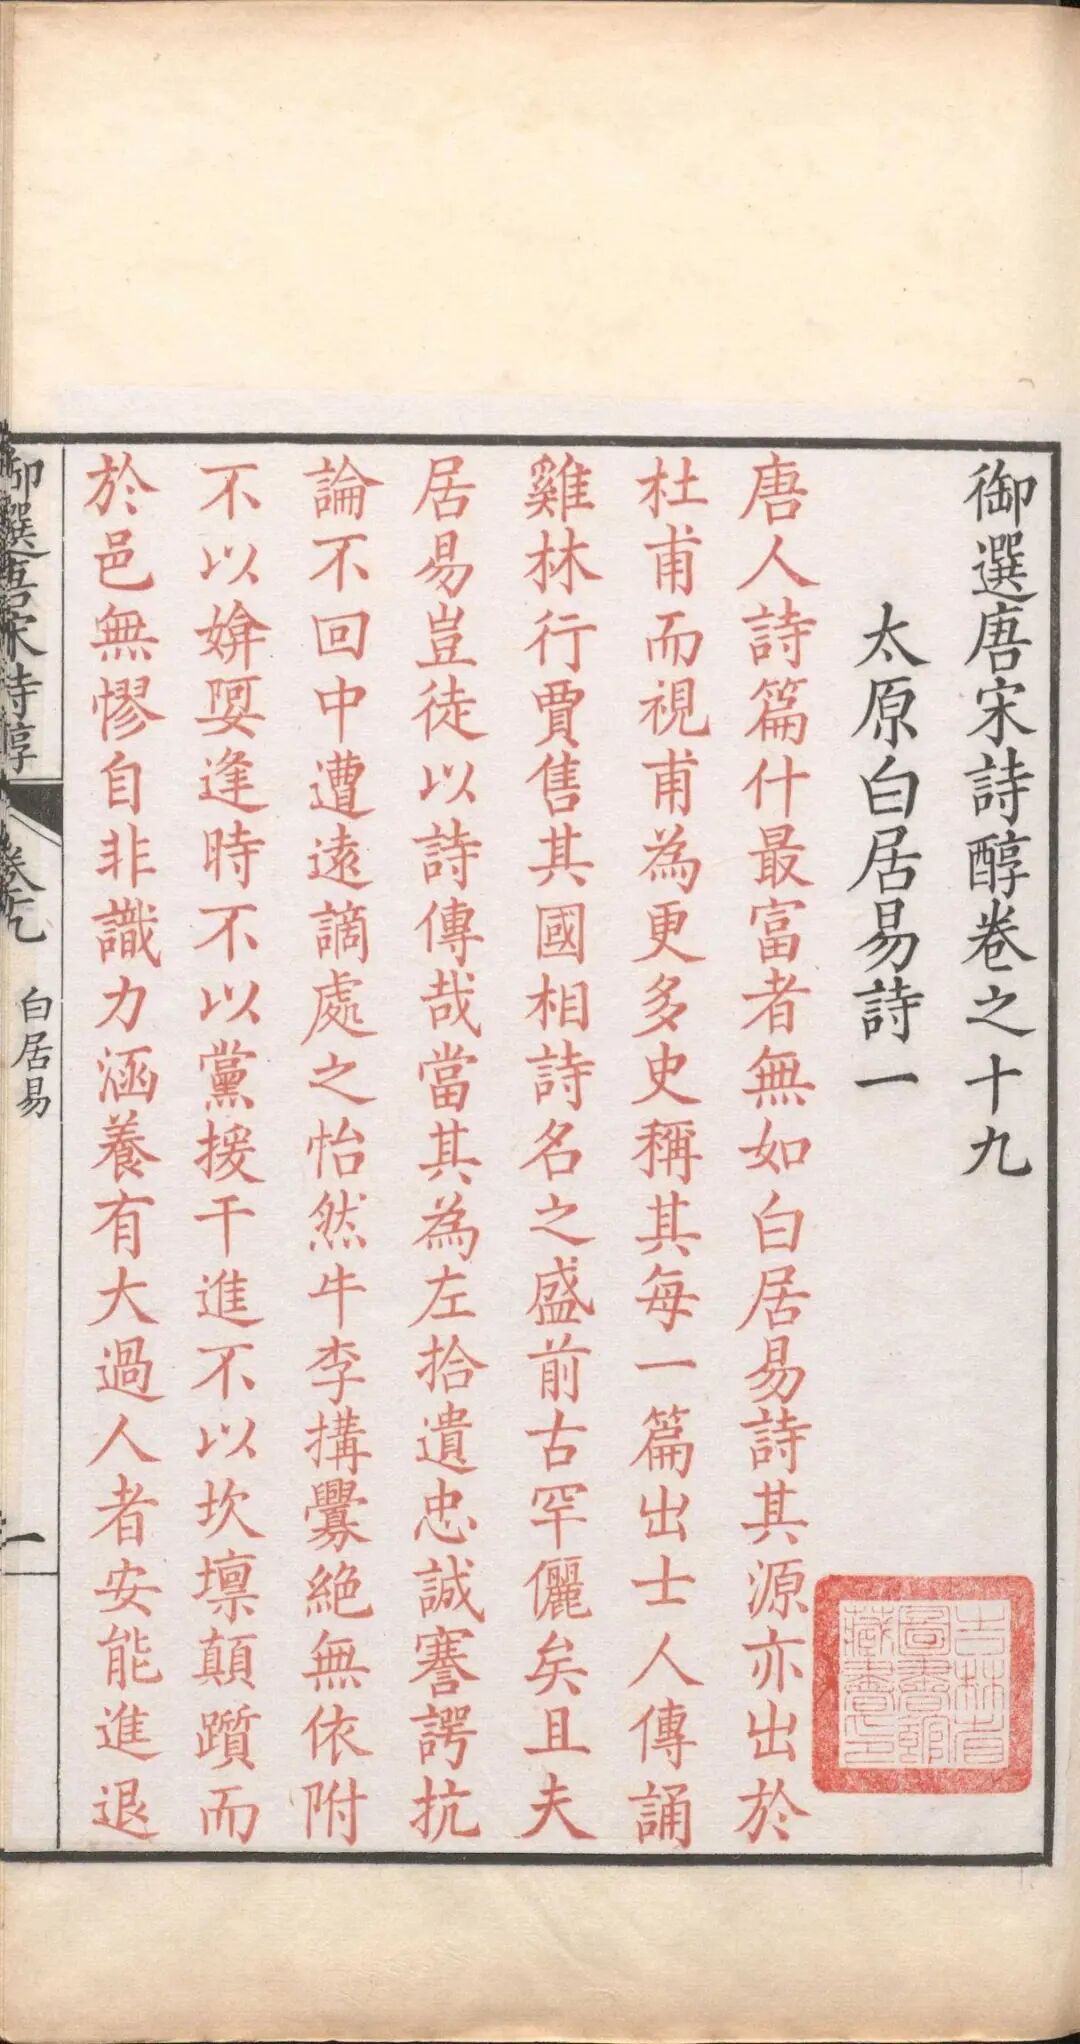 御選唐宋詩醇卷之十九
太原白居易詩一
唐人詩篇什最富者無如白居易詩其源亦出於
杜甫而視甫為更多史稱其每一篇出士人傳誦
雞林行賈售其國相詩名之盛前古罕儷矣且夫
居易豈徒以詩傳哉當其為左拾遺忠誠謇諤抗
論不回中遭遠謫處之怡然牛李搆釁絕無依附
不以媕娿逢時不以黨援干進不以坎壈顛躓而
於邑無憀自非識力涵養有大過人者安能進退
御選唐宋詩醇
白居易
一
吉林省
圖書館
藏書印